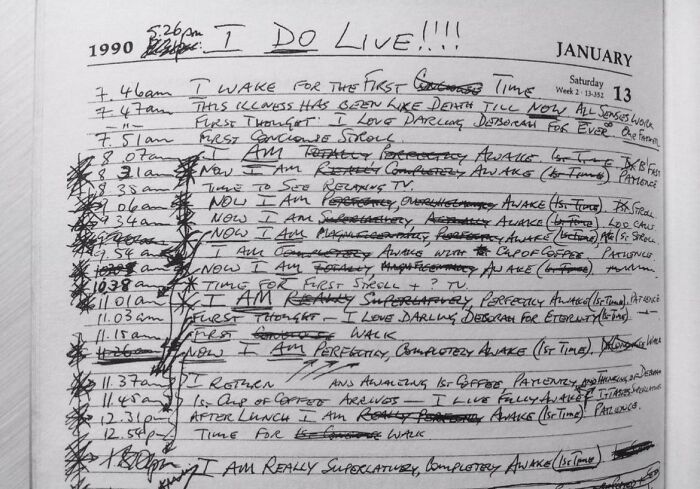 5.26pm
I DO LIVE!!!!
1990 JANUARY
Saturday
Week 2 · 13-352 13
7.46am I WAKE FOR THE FIRST TIME.
7.47am THIS ILLNESS HAS BEEN LIKE DEATH TILL NOW ALL SENSES WORK
-"- FIRST THOUGHT: I LOVE DARLING DEBORAH FOR EVER
7.51am FIRST STROLL.
8.07am I AM TOTALLY PERFECTLY AWAKE. 1st TIME B'FAST
8.31am NOW I AM REALLY COMPLETELY AWAKE (1st TIME) PATIENCE
8.38am TIME TO SEE RELAXING TV.
9.06am NOW I AM PERFECTLY, OVERWHELMINGLY AWAKE (1st TIME). STROLL
9.34am NOW I AM SUPERLATIVELY ACTUALLY AWAKE (1st TIME) LOO CALL
NOW I AM PERFECTLY AWAKE (1st TIME) STROLL
9.54am I AM COMPLETELY AWAKE WITH CUP OF COFFEE. PATIENCE.
NOW I AM TOTALLY, AWAKE (1st TIME)
10.38am TIME FOR FIRST STROLL + ? TV.
11.01am I AM REALLY SUPERLATIVELY, PERFECTLY AWAKE (1st TIME). PATIENCE
11.03am FIRST THOUGHT - I LOVE DARLING DEBORAH FOR ETERNITY (1st TIME)
11.15am FIRST WALK
NOW I AM PERFECTLY, COMPLETELY AWAKE (1st TIME).
11.37am I RETURN AND AWAITING 1st COFFEE, PATIENTLY, THINKING OF DEBORAH
11.45am 1st CUP OF COFFEE ARRIVES - I LIVE FULLY AWAKE
12.31pm AFTER LUNCH I AM REALLY PERFECTLY AWAKE (1st TIME) PATIENCE.
12.54pm TIME FOR WALK
I AM REALLY SUPERLATIVELY, COMPLETELY AWAKE (1st TIME)